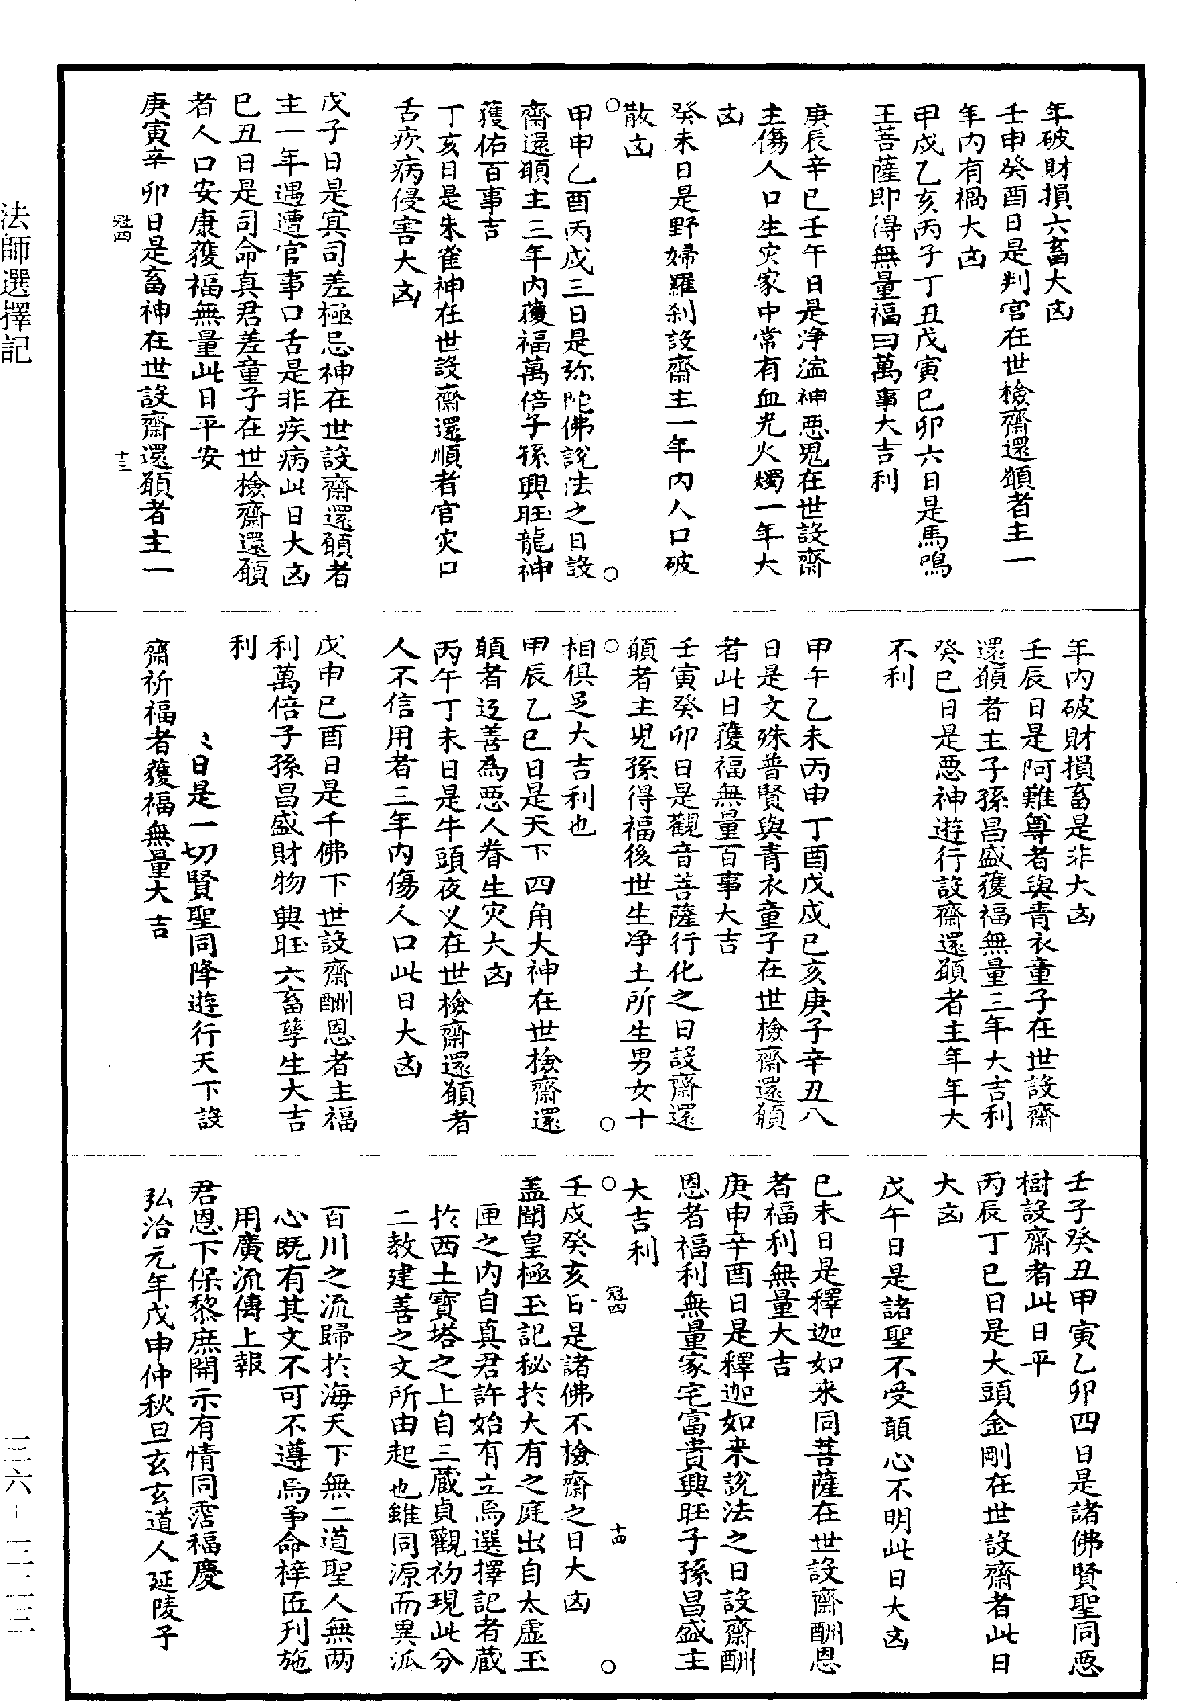 年破財損六畜大凶
壬申癸酉日是判官在世檢齋還願者主一
年內有禍大凶
甲戌乙亥丙子丁丑戊寅己卯六日是馬鳴
王菩薩即得無量福曰萬事大吉利
庚辰辛巳壬午日是净溋神惡鬼在世設齋
主傷人口生灾家中常有血光火燭一年大
凶
癸未日是野婦羅刹設齋主一年內人口破
散凶
甲申乙酉丙戌三日是弥陀佛說法之日設
齋還願主三年內獲福萬倍子孫興旺龍神
獲佑百事吉
丁亥日是朱雀神在世設齋還順者官灾口
舌疾病侵害大凶
戊子日是㝠司差極忌神在世設齋還願者
主一年遇遭官事口舌是非疾病此日大凶
己丑日是司命真君差童子在世檢齋還願
者人口安康獲福無量此日平安
庚寅辛卯日是畜神在世設齋還願者主一
冠四 十三
年內破財損畜是非大凶
壬辰日是阿難尊者與青衣童子在世設齋
還願者主子孫昌盛獲福無量三年大吉利
癸巳日是惡神遊行設齋還願者主年年大
不利
甲午乙未丙申丁酉戊戌己亥庚子辛丑八
日是文殊普賢與青衣童子在世檢齋還願
者此日獲福無量百事大吉
壬寅癸卯日是觀音菩薩行化之日設齋還
願者主兒孫得福後世生净土所生男女十
相俱足大吉利也
甲辰乙巳日是天下四角大神在世檢齋還
願者返善為惡人眷生灾大凶
丙午丁未日是牛頭夜义在世檢齋還願者
人不信用者三年內傷人口此日大凶
戊申己酉日是千佛下世設齋酬恩者主福
利萬倍子孫昌盛財物興旺六畜孳生大吉
利
日是一切賢聖同降遊行天下設
齋祈福者獲福無量大吉
壬子癸丑甲寅乙卯四日是諸佛賢聖同惡
樹設齋者此日平
丙辰丁巳日是大頭金剛在世設齋者此日
大凶
戊午日是諸聖不受顛心不明此日大凶
己未日是釋迦如来同菩薩在世設齋酬恩
者福利無量大吉
庚申辛酉日是釋迦如来說法之日設齋酬
恩者福利無量家宅富貴興旺子孫昌盛主
大吉利
冠四 十四
壬戌癸亥日是諸佛不檢齋之日大凶
盖聞皇極玉記秘於大有之庭出自太虛玉
匣之内自真君許始有立焉選擇記者蔵
於西土寶塔之上自三蔵貞觀初現此分
二教建善之文所由起也雖同源而異派
百川之流歸於海天下無二道聖人無两
心既有其文不可不遵焉爭命梓匠刊施
用廣流傳上報
君恩下保黎庶開示有情同霑福慶
弘治元年戊申仲秋旦玄玄道人延陵子
法師選擇記
三六－二二三